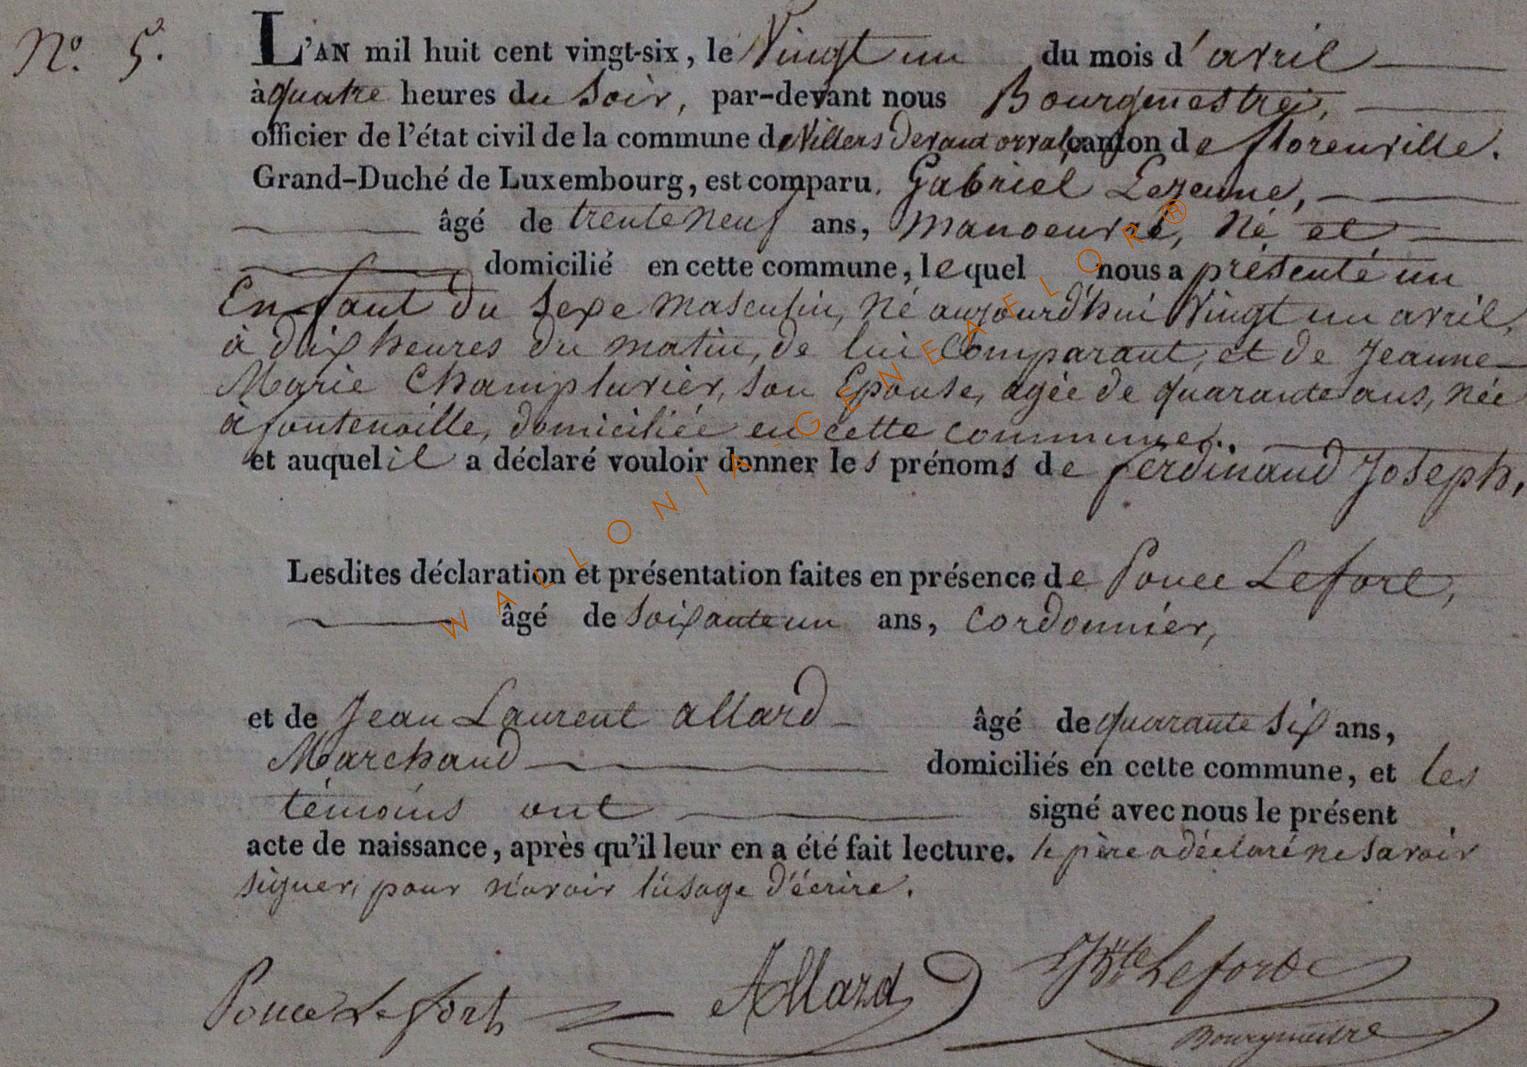 N.o 5. L'AN mil huit cent vingt-six, le Vingt un du mois d'avril
à quatre heures du Soir, par-devant nous Bourgmestre,
officier de l'état civil de la commune de Villers devant orval, canton de florenville.
Grand-Duché de Luxembourg, est comparu Gabriel Lejeune,
âgé de trente neuf ans, manoeuvre, Né et
domicilié en cette commune, lequel nous a présenté un
Enfant du Sexe masculin, Né aujourd'hui Vingt un avril,
à dix heures du matin, de lui Comparant, et de Jeanne
Marie Champluvier, son Epouse, agée de quarante ans, née
à fontenoille, domiciliée en cette commune.
et auquel il a déclaré vouloir donner les prénoms de ferdinand Joseph,
Lesdites déclaration et présentation faites en présence de Ponce Lefort,
âgé de Soixante un ans, Cordonnier,
et de Jean Laurent allard âgé de quarante six ans,
Marchand domiciliés en cette commune, et les
témoins ont signé avec nous le présent
acte de naissance, après qu'il leur en a été fait lecture. le père a déclaré ne savoir
signer, pour n'avoir l'usage d'écrire.
Ponce Lefort Allard Lefort
Bourgmestre
WALLONIA-GENEAELOR®